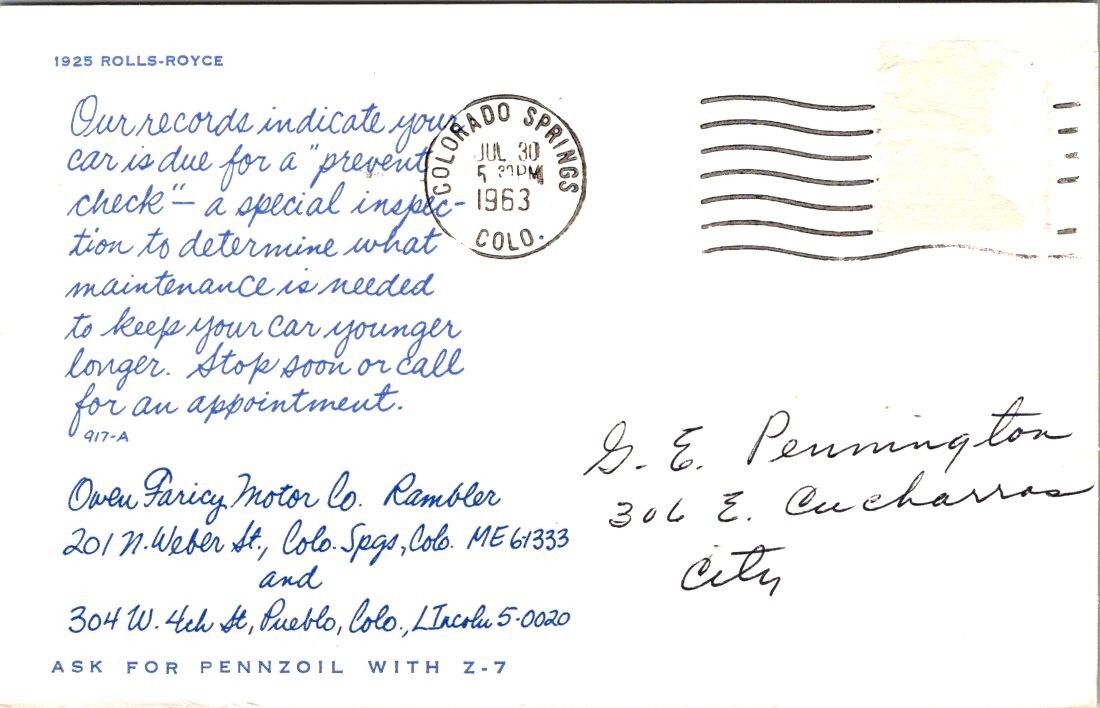 1925 ROLLS-ROYCE
Our records indicate your
car is due for a "prevent
check" — a special inspec-
tion to determine what
maintenance is needed
to keep your car younger
longer. Stop soon or call
for an appointment.
917-A
COLORADO SPRINGS
JUL 30
5 PM
1963
COLO.
G. E. Pennington
306 E. Cucharras
City
Owen Faricy Motor Co. Rambler
201 N. Weber St., Colo. Spgs, Colo. ME 61333
and
304 W. 4th St, Pueblo, Colo., LIncoln 5-0020
ASK FOR PENNZOIL WITH Z-7